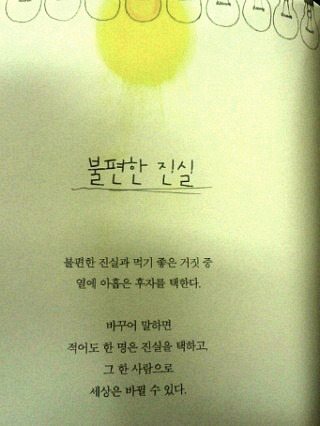 불편한 진실
불편한 진실과 먹기 좋은 거짓 중
열에 아홉은 후자를 택한다.
바꾸어 말하면
적어도 한 명은 진실을 택하고,
그 한 사람으로
세상은 바뀔 수 있다.